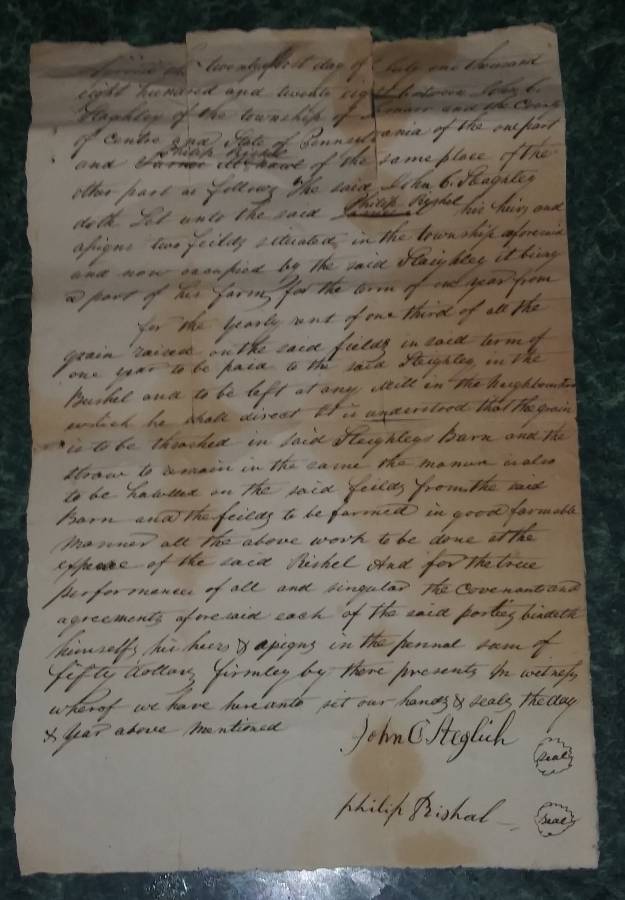 twenty first day of July one thousand
eight hundred and twenty eight between John C.
Steighley of the township of and the County
of Centre and State of Pennsylvania of the one part
Philip Rishel
and of the same place of the
other part as follows The said John C. Steighley
Philip Rishel
doth Let unto the said James his heirs and
asigns two feilds situated in the township aforesaid
and now occupied by the said Steighley it being
a part of his farm for the term of one year from
for the yearly rent of one third of all the
grain raised on the said fields in said term of
one year to be paid to the said Steighley in the
Bushel and to be left at any Mill in the neighbourhood
which he shall direct It is understood that the grain
is to be thrashed in said Steighleys Barn and the
straw to remain in the same the manure is also
to be hawlled on the said feilds from the said
Barn and the feilds to be farmed in good farmable
manner all the above work to be done at the
expence of the said Rishel And for the true
performance of all and singular the Covenants and
agreements aforesaid each of the said parties bindeth
himselfs his heirs & asigns in the pennal sum of
fifty dollars firmley by these presents In witness
wherof we have hereunto set our hands & seals the day
& year above mentioned
John C Steglich
Seal
Philip Rishal
Seal